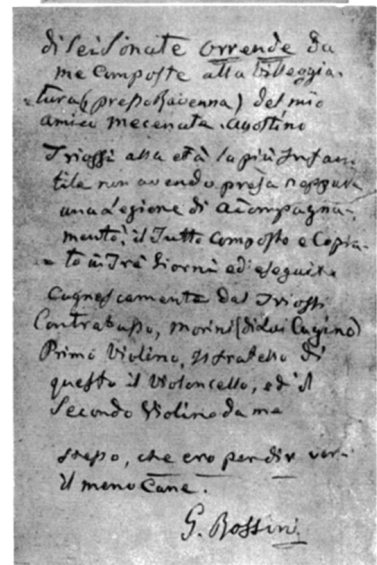 di Sei Sonate orrende da
me composte alla Villeggia-
tura (presso Ravenna) del mio
amico mecenate Agostino
Triossi alla età la più Infan-
tile non avendo presa neppure
una Legione di accompagna-
mento, il Tutto Composto e Copia-
to in Tre Giorni ed eseguite
Cagnescamente dal Triossi
Contrabasso, Morini (di Lui Cugino)
Primo Violino, il fratello di
questo il Violoncello, ed il
Secondo Violino da me
stesso, che ero per dir ver
il meno Cane.
G. Rossini